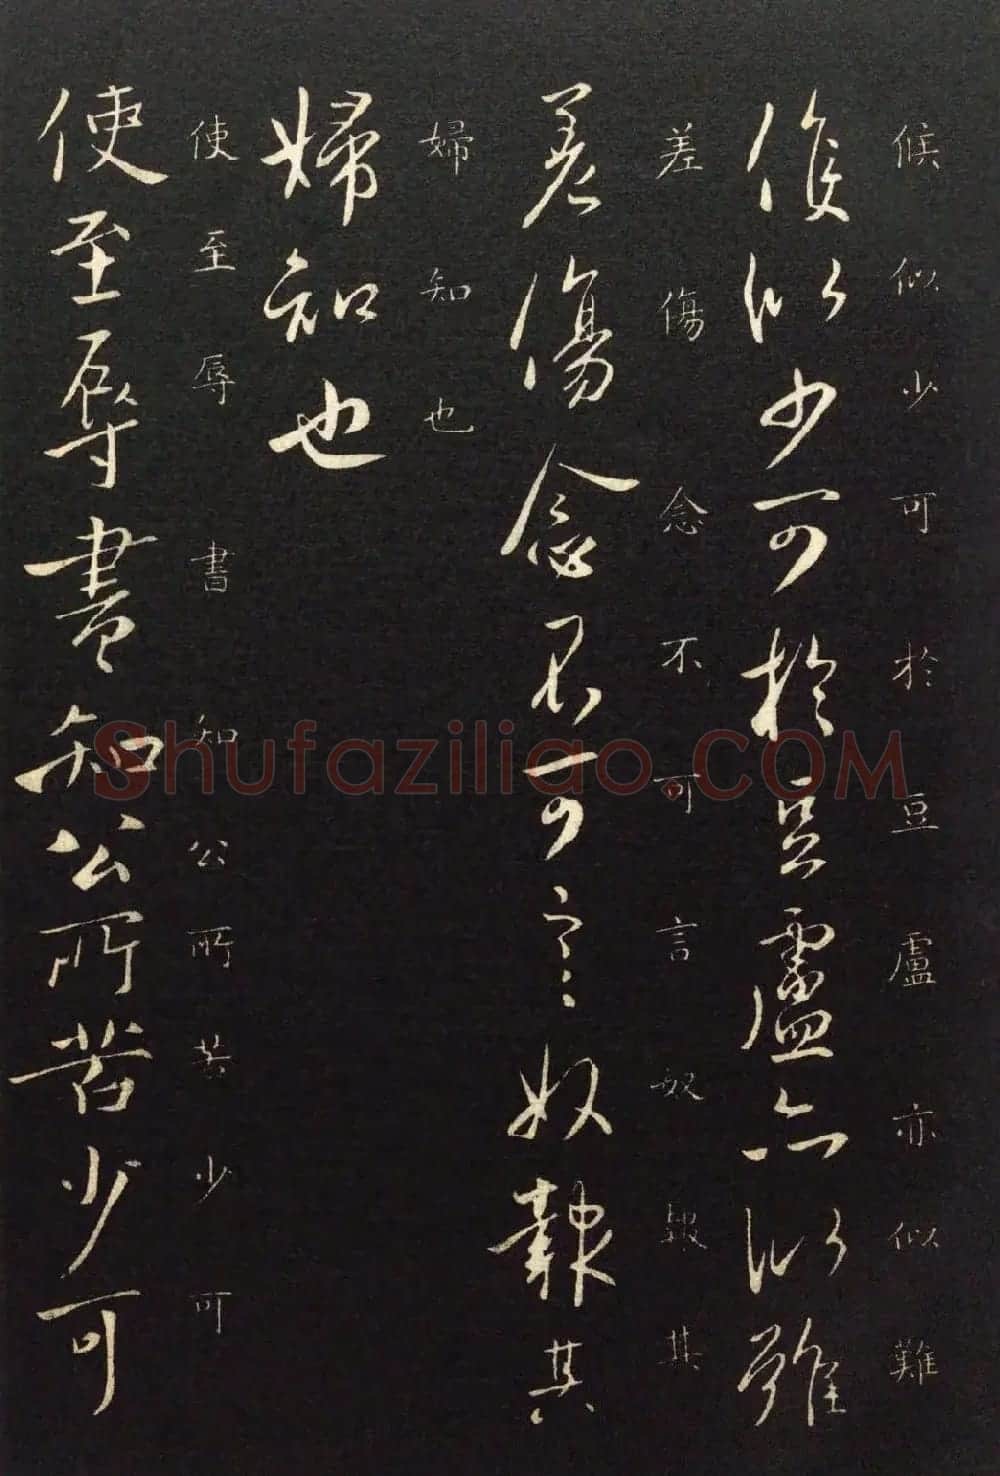 候似少可於豆盧亦似難
候似少可於豆盧亦似難
差傷念不可言奴報其
差傷念不可言奴報其
婦知也
婦知也
使至辱書知公所苦少可
使至辱書知公所苦少可
Shufaziliao.COM